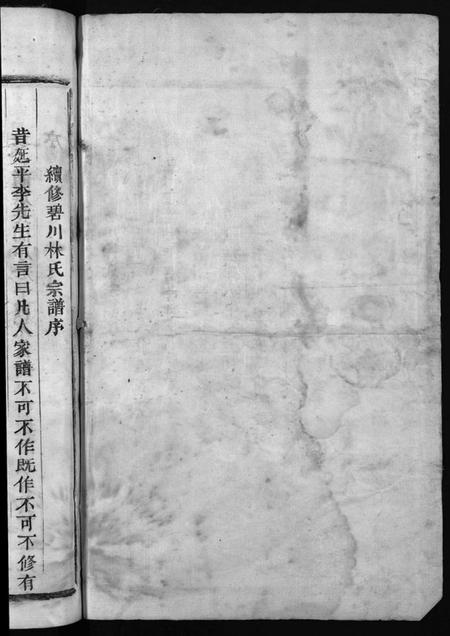 續修碧川林氏宗譜序
昔延平李先生有言曰凡人家譜不可不作既作不可不修有